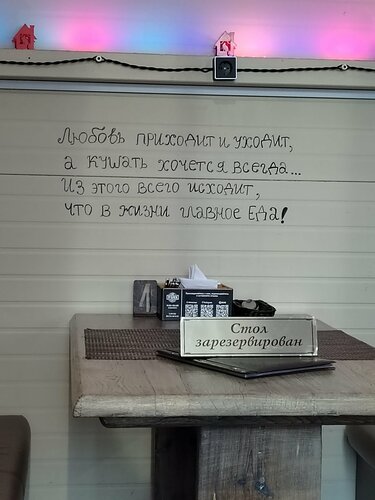 Любовь приходит и уходит,
а кушать хочется всегда...
Из этого всего исходит,
что в жизни главное Еда!
Стол
зарезервирован